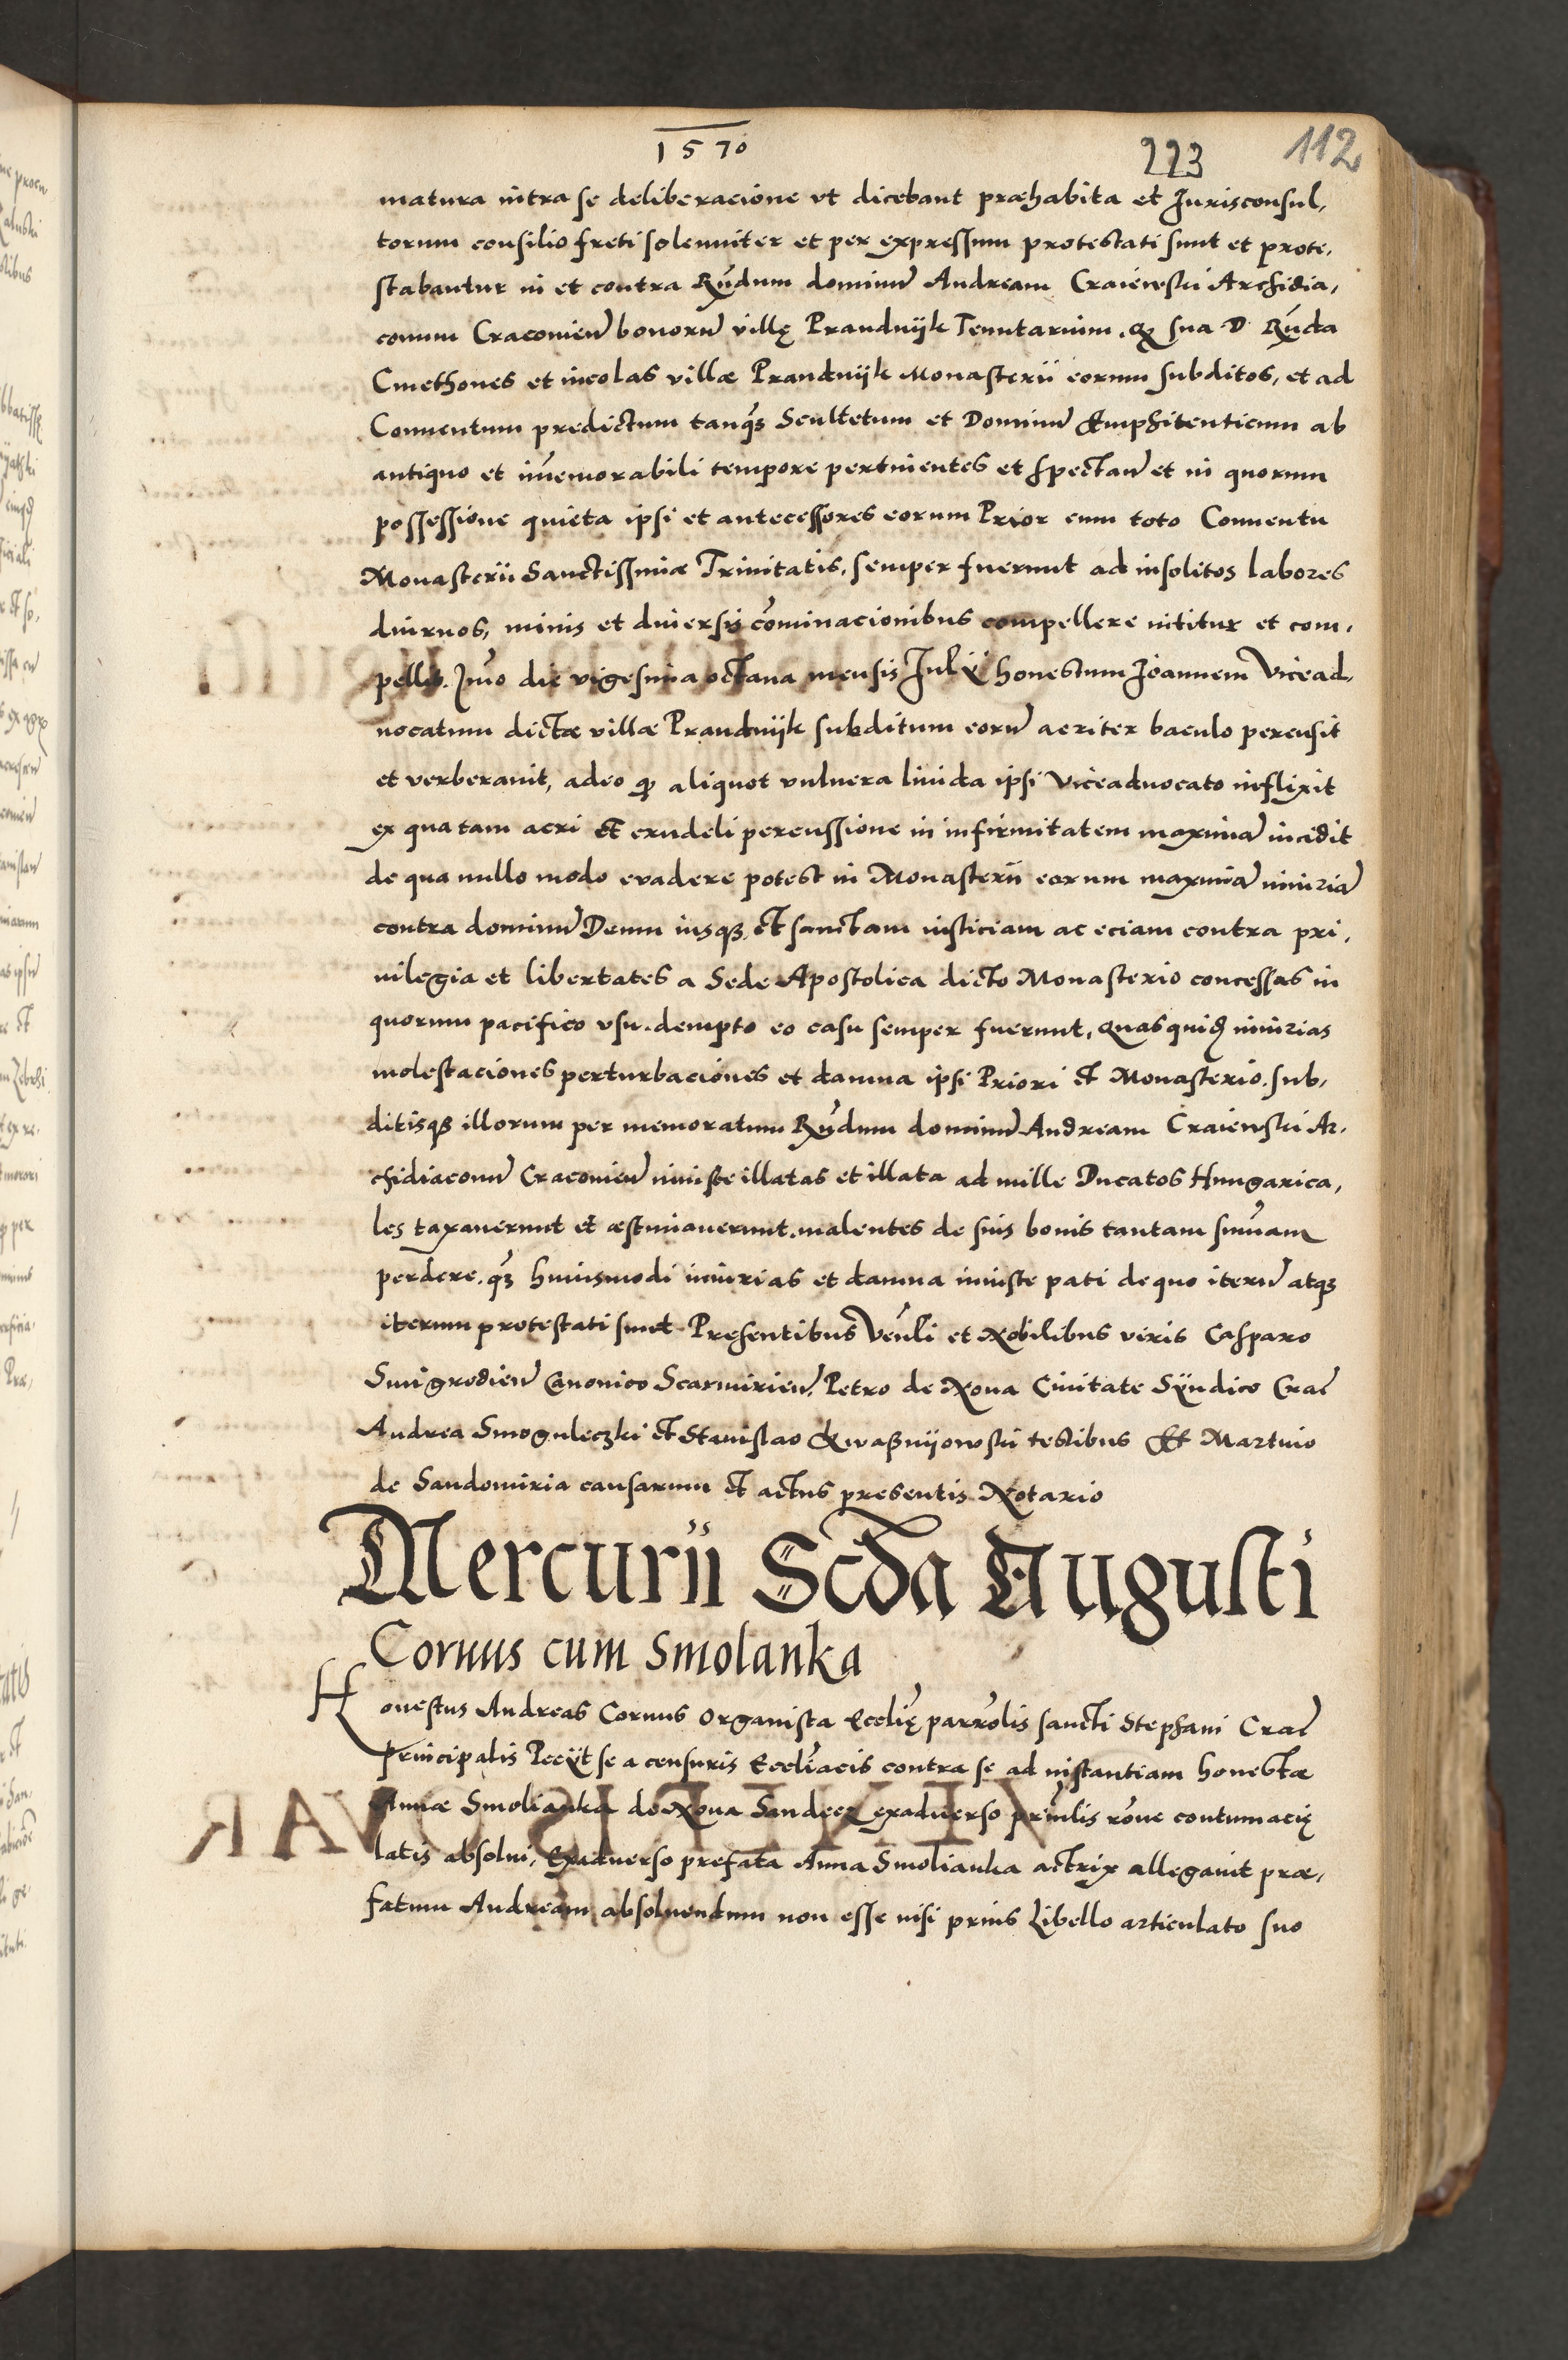 1570
223
112
matura intra se deliberacione vt dicebant præhabita et Jurisconsul,
torum consilio freti solenniter et per expressum protestati sunt et prote,
stabantur in et contra Rñdum dominũ Andream Craiewski Archidia,
conum Cracovieñ bonorũ villę Prandnijk Tenutarium. Q sua D. Rñda
Cmethones et incolas villæ Prandnijk Monasterii eorum subditos, et ad
Conuentum predictum tanq̃ Scultetum et Dominũ Emphiteuticum ab
antiquo et im̃emorabili tempore pertinentes et spectañ et in quorum
possessione quieta ipsi et antecessores eorum Prior cum toto Conuentu
Monasterii Sanctissimæ Trinitatis, semper fuerunt ad insolitos labores
diurnos, minis et diuersis com̃inacionibus compellere nititur et com,
pellit. Jmo die vigesima octaua mensis Julÿ honestum Joannem Vicead,
uocatum dictæ villæ Prandnijk subditum eorũ acriter baculo percusit
et verberauit, adeo q aliquot vulnera liuida ipsi Viceaduocato inflixit
ex qua tam acri et crudeli percussione in infirmitatem maximã incidit
de qua nullo modo euadere potest in Monasterii eorum maximã iniuriã
contra dominũ Deum iusq et sanctam iusticiam ac eciam contra pri,
uilegia et libertates a Sede Apostolica dicto Monasterio concessas in
quorum pacifico vsu. dempto eo casu semper fuerunt, Quas quid iniurias
molestaciones perturbaciones et damna ipsi Priori et Monasterio. sub,
ditisq illorum per memoratum Rñdum dominũ Andream Craiewski Ar,
chidiaconũ Cracovieñ iniuste illatas et illata ad mille Ducatos Hungarica,
les taxauerunt et æstimauerunt. malentes de suis bonis tantam sum̃am
perdere. q̃ huiusmodi iniurias et damna iniuste pati de quo iterũ atq
iterum protestati sunt. Presentibus Veñli et Nobilibus viris Casparo
Smigrodieñ Canonico Scarmirieñ, Petro de Noua Ciuitate Sÿndico Crac̃
Andrea Smoguleczki et Stanislao Kwaßnijowski testibus Et Martino
de Sandomiria causarum et actus presentis Notario
Mercurii Scda Augusti
Coruus cum Smolanka
Honestus Andreas Coruus Organista Ecclię parrolis sancti Stephani Crac̃
principalis Pecÿt se a censuris Eccliacis contra se ad instantiam honestæ
Annæ Smolianka de Noua Sandecz exaduerso prinlis rõne contumacię
latis absolui, Exaduerso prefata Anna Smolianka actrix allegauit præ,
fatum Andream absoluendum non esse nisi prius Libello articulato suo